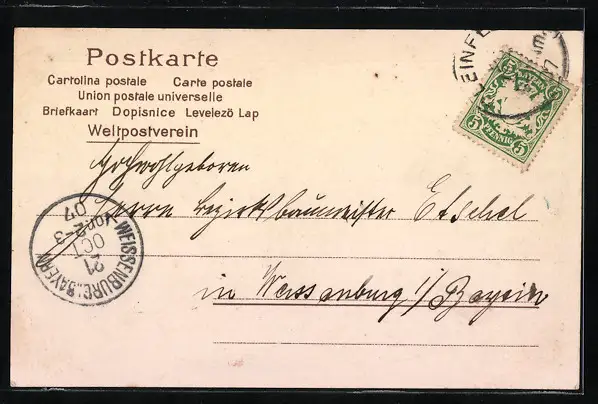 Postkarte
Cartolina postale Carte postale
Union postale universelle
Briefkaart Dopisnice Levelezö Lap
Weltpostverein
Hochwohlgeboren
Herrn Bezirksbaumeister Etschel
in Weissenburg i/Bayern
WEISSENBURG I. BAYERN
21
OCT
Vor. 2-3
07
BAYERN
5 5
5 5
PFENNIG